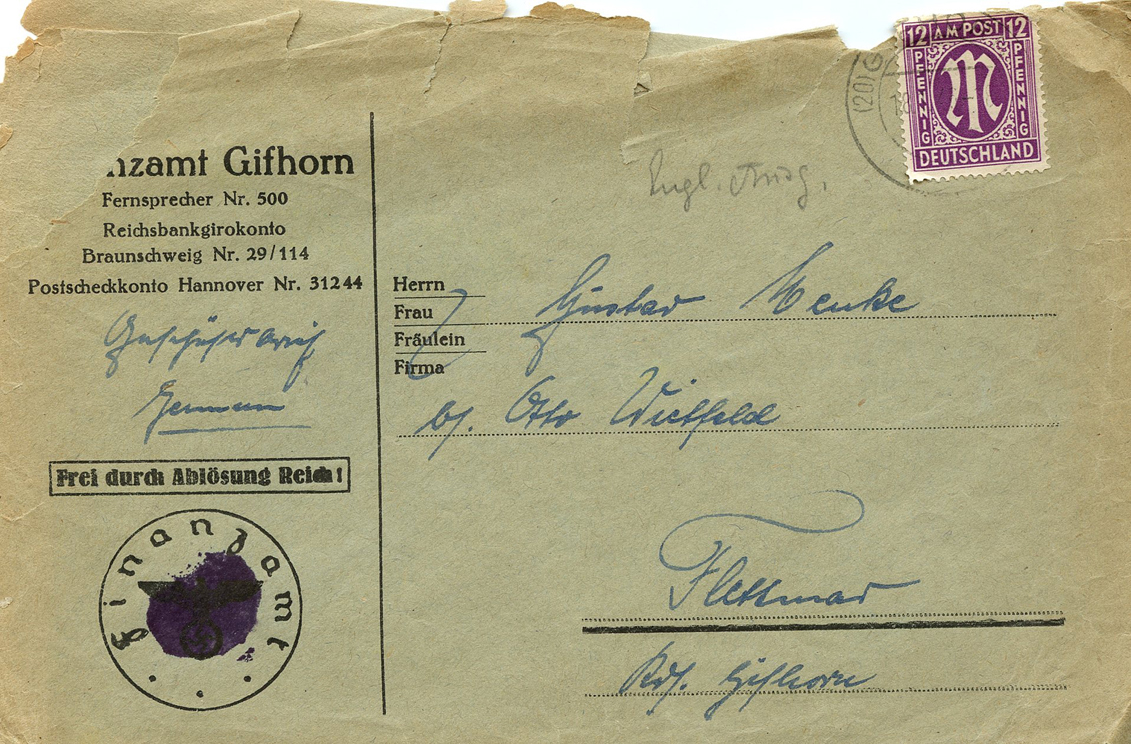 nzamt Gifhorn
Fernsprecher Nr. 500
Reichsbankgirokonto
Braunschweig Nr. 29/114
Postscheckkonto Hannover Nr. 31244
Frei durch Ablösung Reich!
Finanzamt
12 AM POST 12
PFENNIG PFENNIG
DEUTSCHLAND
(20) G
Engl. Ausg.
Herrn
Frau
Fräulein
Firma
Gustav Menke
bj. Otto Wietfeld
Flettmar
Gifhorn